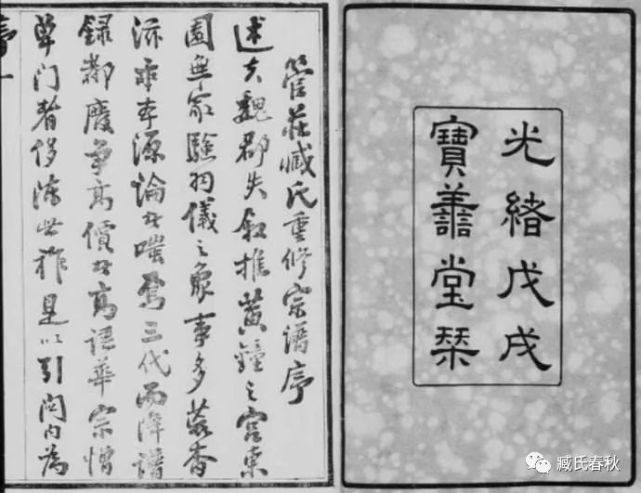 光緒戊戌
寶譱堂栞
管莊臧氏重修宗譜序
述夫魏郡失叙推黃鐘之宮東
園無家驗羽儀之象事多茫杳
派乖本源論者嗤焉三代而降譜
録都廢爭高價者高語華宗憎
單门者侈世祚是以引內為
序一
臧氏春秋